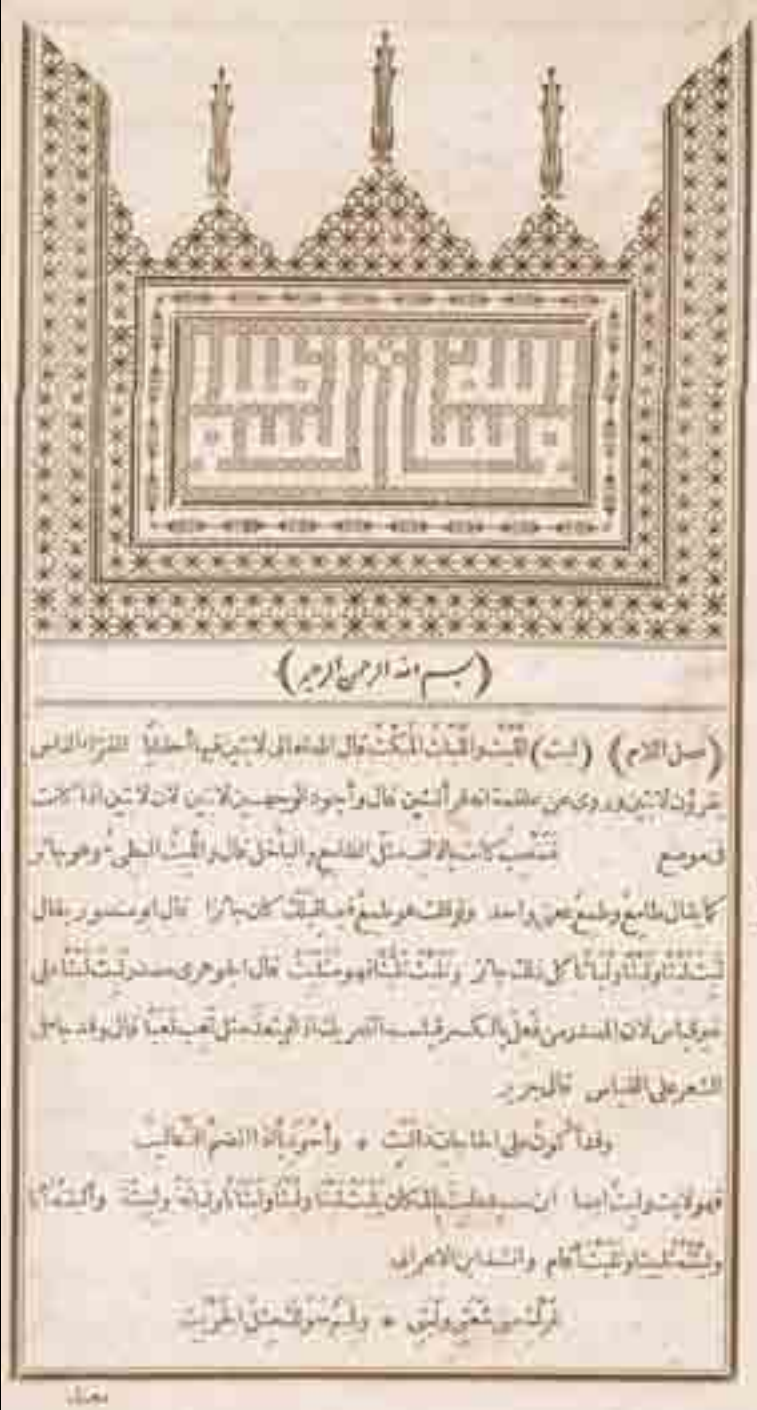 (بسم الله الرحمن الرحيم)
(فصل اللام) (لبث) اللبث واللباث المكث قال الله تعالى لابثين فيها أحقابا الفراء الناس
يقرؤن لابثين وروى عن علقمة انه قرأ لبثين قال وأجود الوجهين لابثين لان لابثين اذا كانت
فى موضع فتنصب كانت بالالف مثل الطامع والباخل قال واللبث البطىء وهو جائز
كما يقال طامع وطمع بمعنى واحد ولو قلت هو طمع فيما قبلك كان جائزا قال ابو منصور يقال
لبث لبثا ولبثا ولباثا كل ذلك جائز وتلبث تلبثا فهو متلبث قال الجوهرى مصدر لبث لبثا على
غير قياس لان المصدر من فعل بالكسر قياسه التحريك اذا لم يتعد مثل تعب تعبا قال وقد جاء فى
الشعر على القياس قال جرير
وقد أكون على الحاجات ذا لبث * وأحوذيا اذا انضم الذعاليب
فهو لابث ولبث ايضا ابن سيده لبث بالمكان يلبث لبثا ولبثا ولبثانا ولباثة ولبيثة وألبثته أنا
ولبثته تلبيثا وتلبث أقام وانشد ابن الاعرابى
غرك منى شعثى ولبثى * ولمم حولك مثل الحربث
معناه